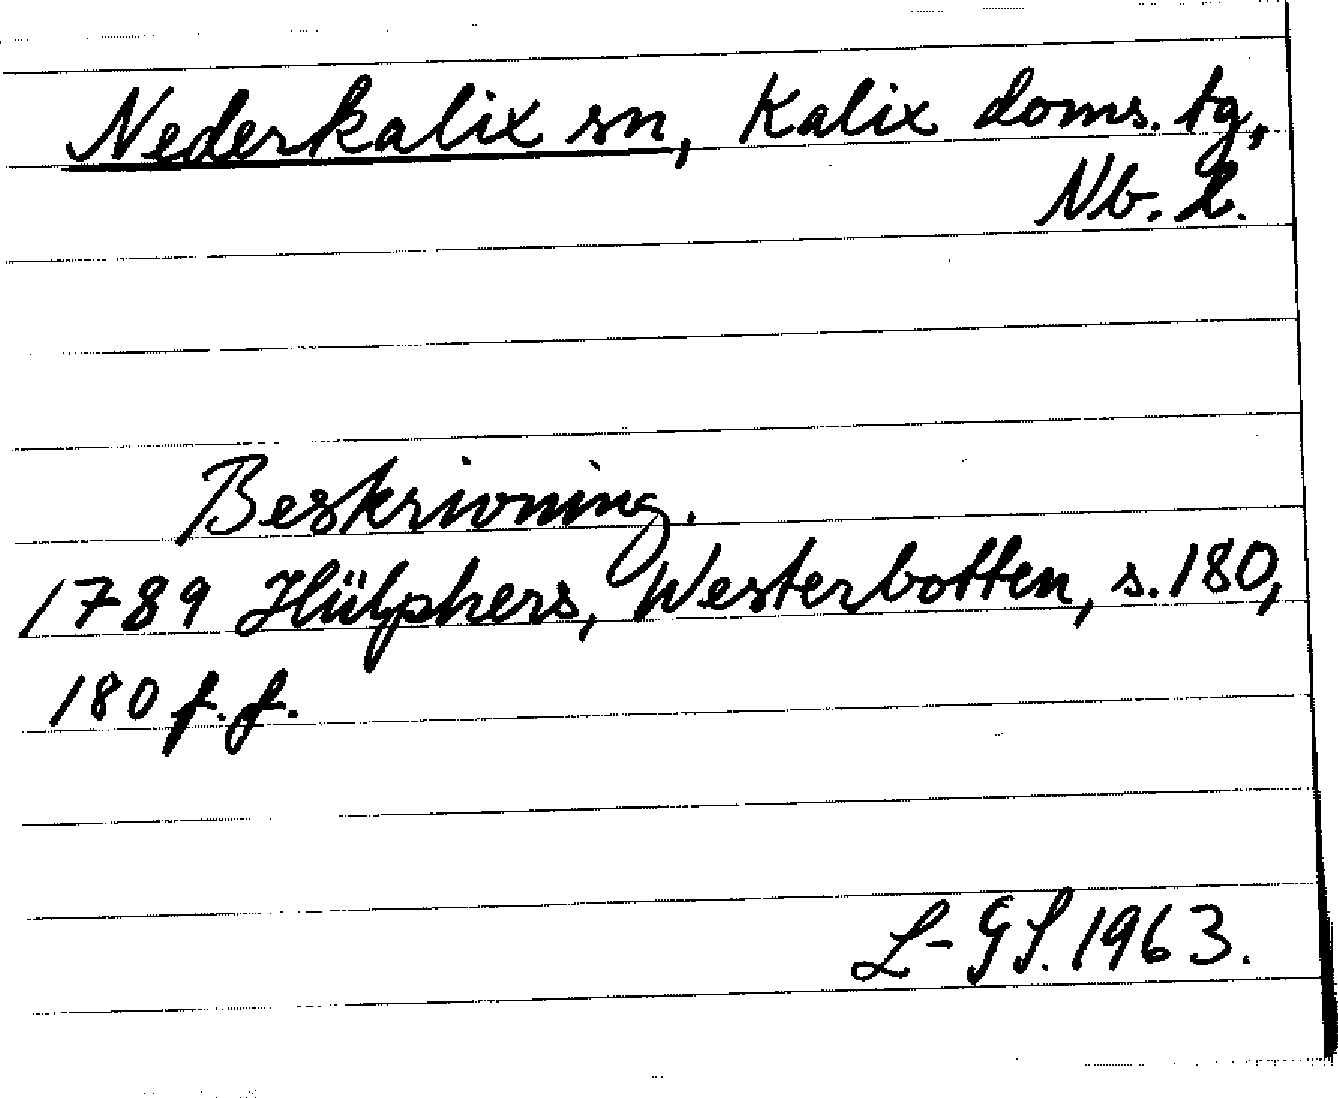 Nederkalix sn, Kalix doms. tg,
Nb. l.
Beskrivning.
1789 Hülphers, Westerbotten, s. 180,
180 f.f.
L-GS. 1963.